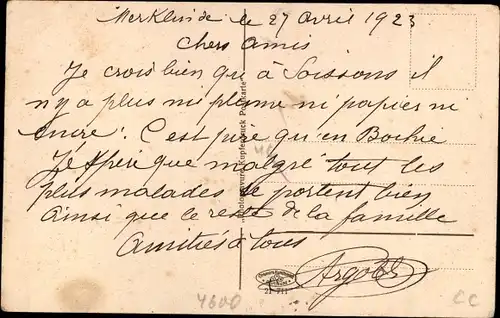 Merklinde le 27 Avril 1923
Chers Amis
Je crois bien que à Soissons il
n'y a plus ni plume ni papier ni
encre! C'est pire qu'en Bochie
J'espère que malgré tout les
plus malades se portent bien
ainsi que le reste de la famille
Amitiés à tous
Kupfertiefdruck Postkarte
21 711
4600
CC